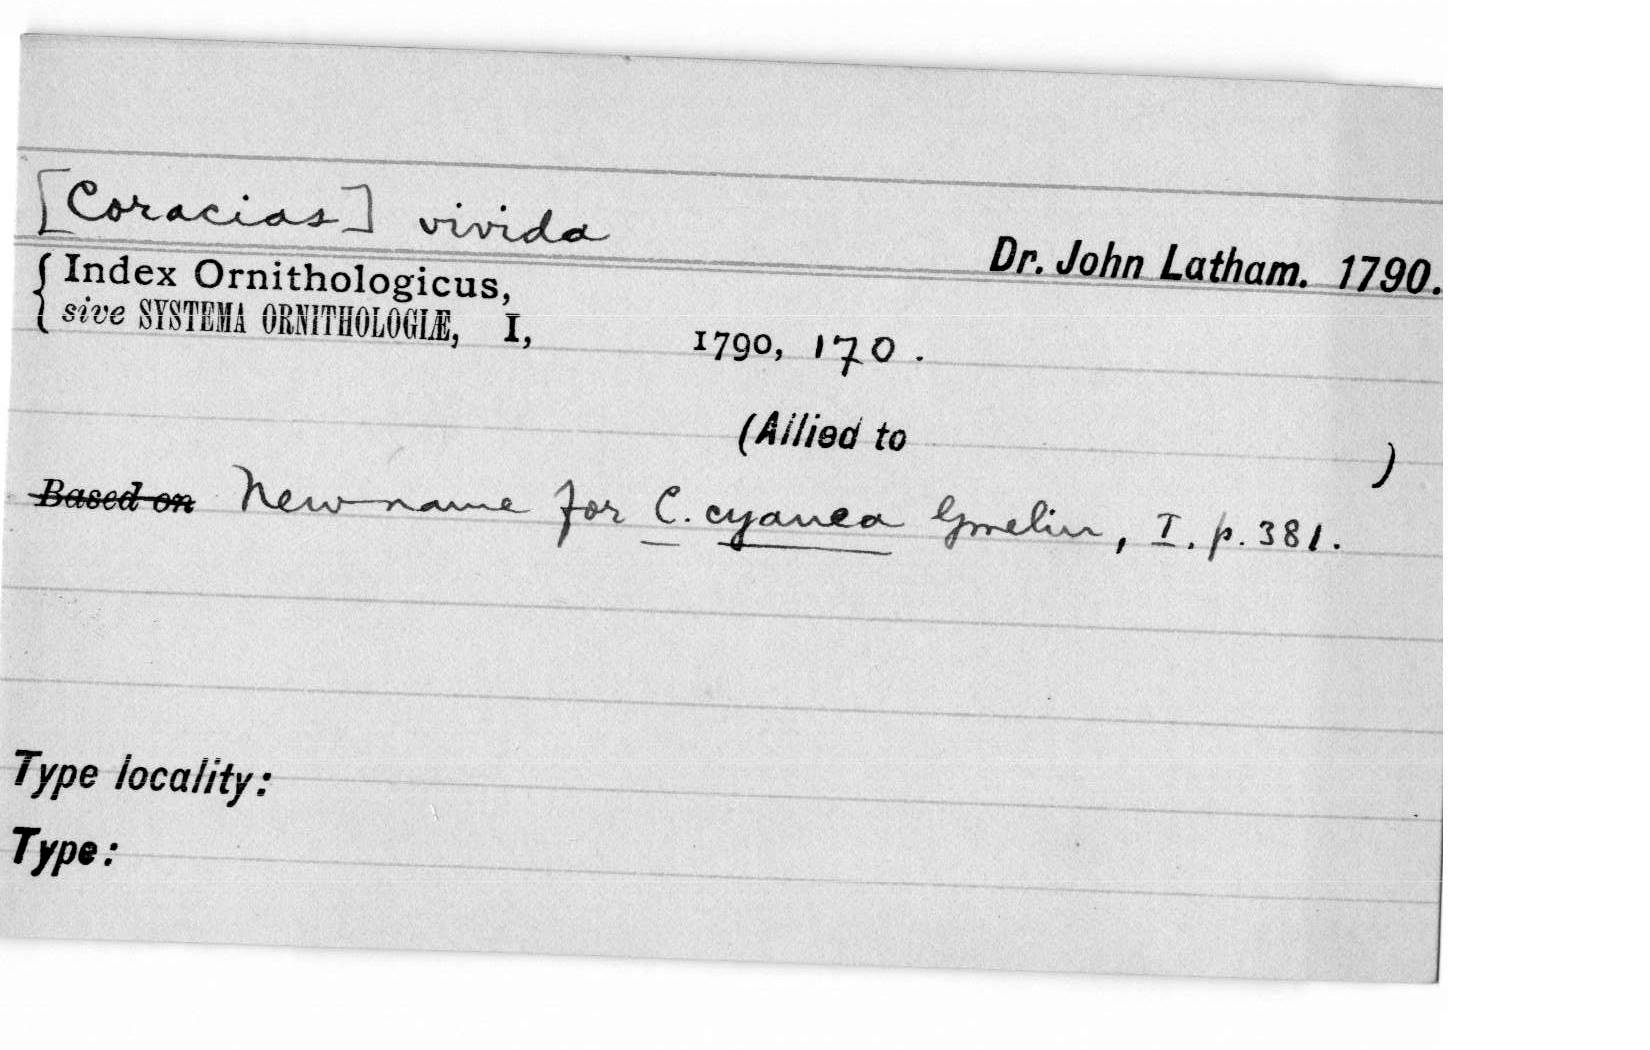 [Coracias] vivida
Dr. John Latham. 1790.
{ Index Ornithologicus,
sive SYSTEMA ORNITHOLOGIÆ, I, 1790, 170.
(Allied to )
Based on New name for C. cyanea Gmelin, I. p. 381.
Type locality:
Type: